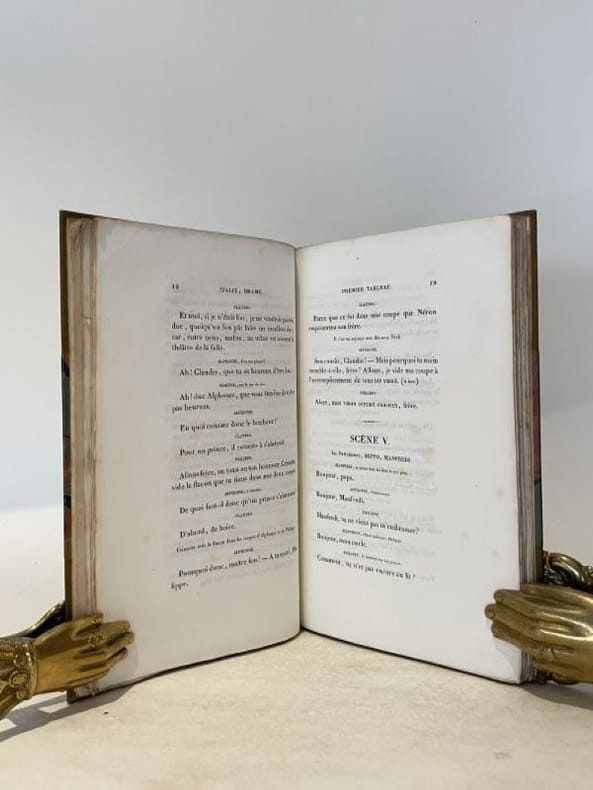 18
ITALIE, DRAME.
CLAUDIO.
Et moi, si je n'étais fou, je ne voudrais pas être
duc, quoiqu'un fou pût faire un excellent duc;
car, entre nous, maître, un trône est souvent
théâtre de la folie.
ALPHONSE,
Ah! Claudio, que tu es heureux d'être fou.
CLAUDIO,
Ah! duc Alphonse, que vous êtes fou de n'être
pas heureux.
ALPHONSE.
En quoi consiste donc le bonheur?
CLAUDIO.
Pour un prince, il consiste à s'abrutir.
PHILIPPE.
Allons frère, un toast en ton honneur
vide le flacon que tu tiens dans nos deux coupes.
ALPHONSE, à Claudio.
De quoi faut-il donc qu'un prince s'abstienne?
CLAUDIO.
D'abord, de boire.
vide le flacon dans les coupes d'Alphonse et de Philippe.
ALPHONSE.
Pourquoi donc, maître fou? — A ta santé, Phi-
lippe.
PREMIER TABLEAU.
19
CLAUDIO.
Parce que ce fut dans une coupe que Néron
empoisonna son frère.
ALPHONSE.
Sois maudit, Claudio! — Mais pourquoi ta main
tremble-t-elle, frère? Allons, je vide ma coupe à
l'accomplissement de tous tes vœux. (Il boit.)
PHILIPPE.
Alors, mes vœux seront exaucés, frère.
SCÈNE V.
Les Précédents, BEPPO, MANFRÉDI.
MANFRÉDI,
Bonjour, papa.
ALPHONSE,
Bonjour, Manfrédi.
PHILIPPE.
Manfrédi, tu ne viens pas m'embrasser?
MANFRÉDI,
Bonjour, mon oncle.
PHILIPPE,
Comment, tu n'es pas encore au lit?